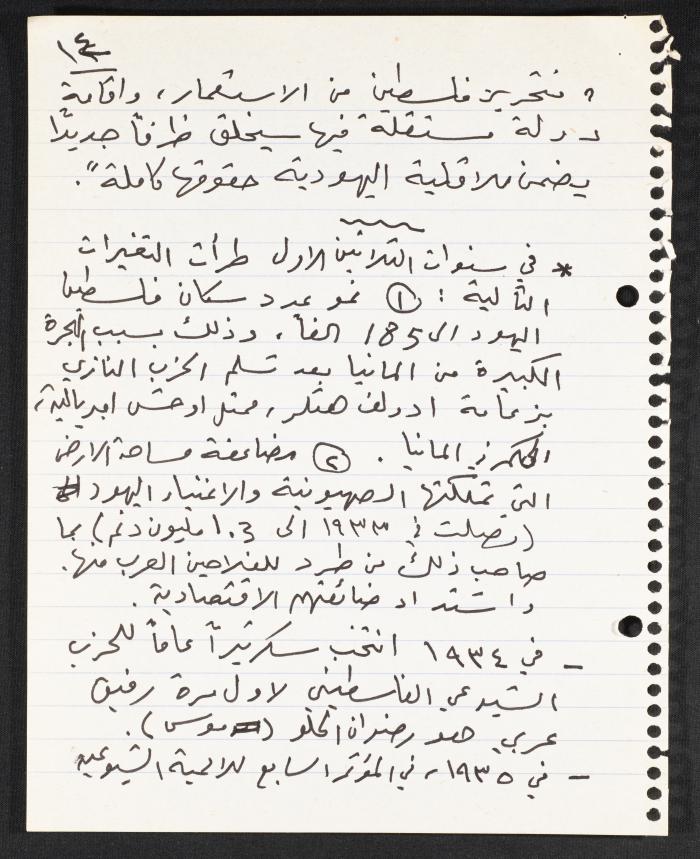 ١٤
" فتحرير فلسطين من الاستعمار، واقامة
دولة مستقلة فيها سيخلق ظرفاً جديداً
يضمن للاقلية اليهودية حقوقها كاملة".
* في سنوات الثلاثين الاول طرأت التغيرات
التالية : ① نمو عدد سكان فلسطين
اليهود الى 185 الفاً، وذلك بسبب الهجرة
الكبيرة من المانيا بعد تسلم الحزب النازي
بزعامة ادولف هتلر، ممثل اوحش امبريالية،
الحكم في المانيا . ② مضاعفة مساحة الارض
التي تملكتها الصهيونية والاغنياء اليهود
(وصلت في ١٩٣٣ الى 1.3 مليون دنم) بما
صاحب ذلك من طرد للفلاحين العرب منها.
واشتداد ضائقتهم الاقتصادية .
– في ١٩٣٤ انتخب سكرتيراً عاماً للحزب
الشيوعي الفلسطيني لاول مرة رفيق
عربي هو رضوان الحلو (موسى).
– في ١٩٣٥، في المؤتمر السابع للاممية الشيوعية